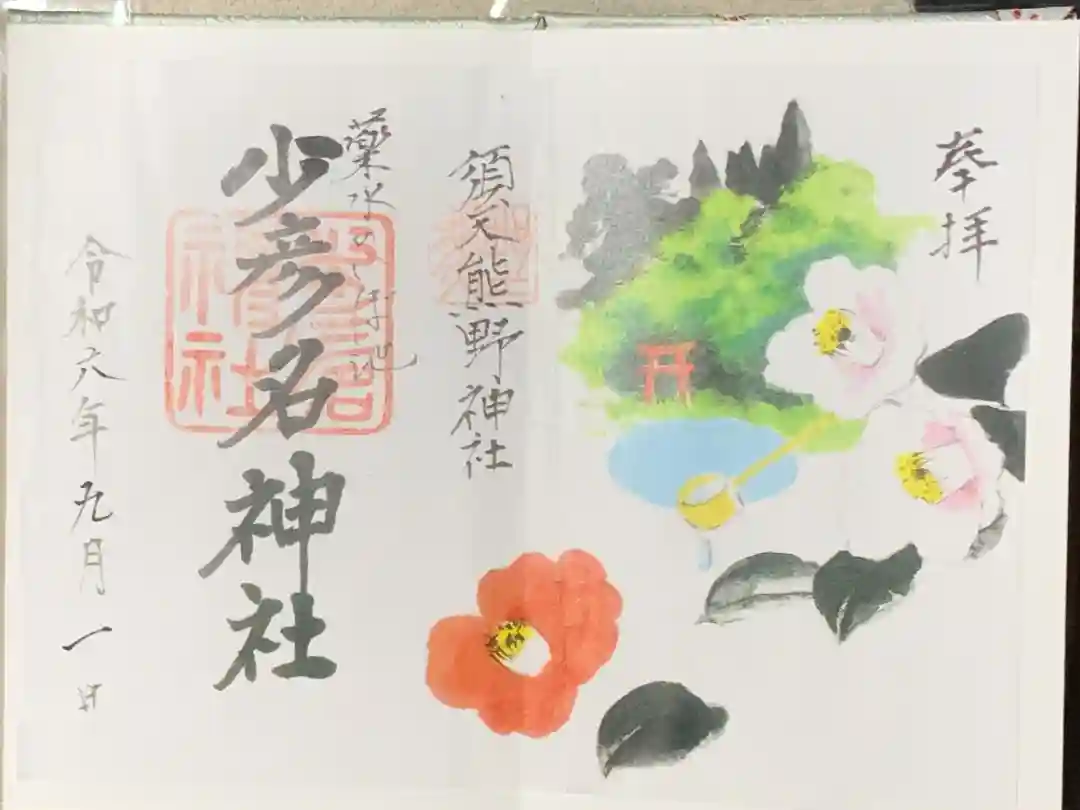 奉拝
須天熊野神社
薬水のしば池
少彦名神社
令和六年九月一日